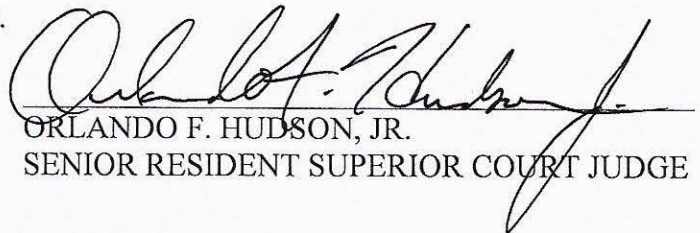 Orlando F. Hudson, Jr.
ORLANDO F. HUDSON, JR.
SENIOR RESIDENT SUPERIOR COURT JUDGE